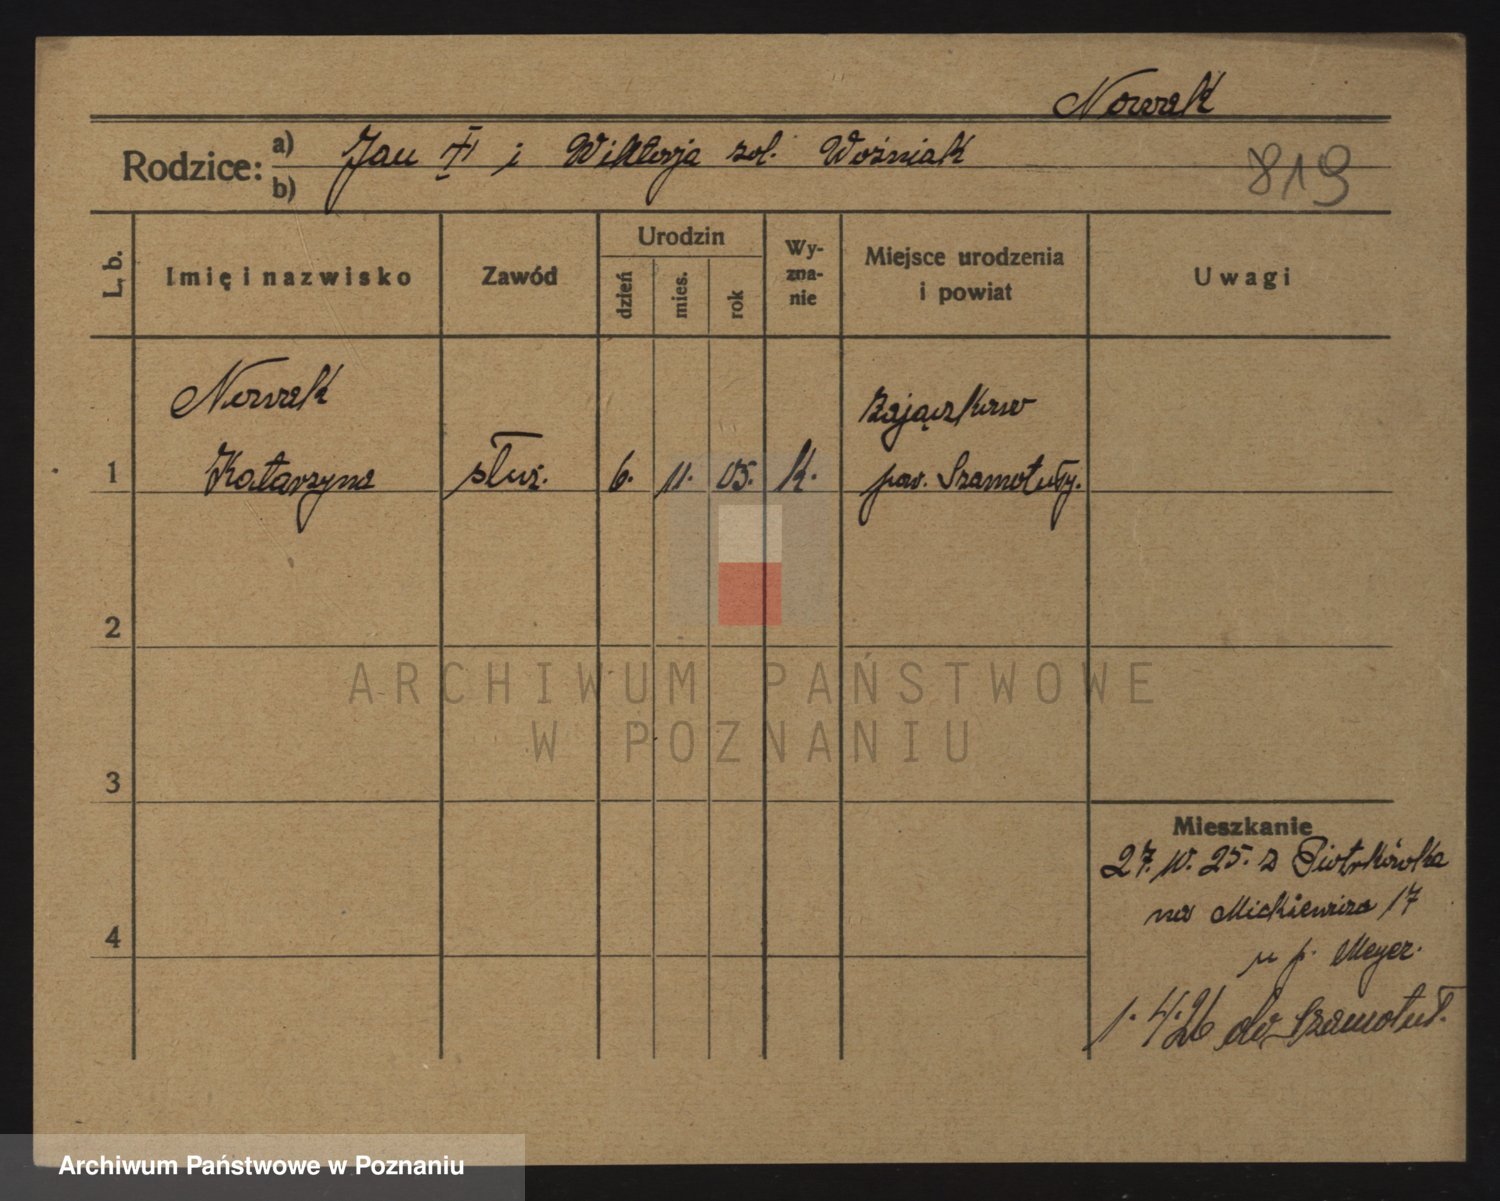 Nowak
Rodzice: a) Jan i Wiktorja Woźniak
b)
819
L. b. Imię i nazwisko Zawód Urodzin dzień mies. rok Wyzna-nie Miejsce urodzenia i powiat Uwagi
Nowak Zajączkowo
1 Katarzyna służ. 6. 11. 05. k. pow. Szamotuły.
2
ARCHIWUM PAŃSTWOWE
W POZNANIU
3
Mieszkanie
27. 10. 25. z Piotrkówka
na Mickiewicza 17
4
u p. Meyer.
1. 4. 26 do Szamotuł.
Archiwum Państwowe w Poznaniu